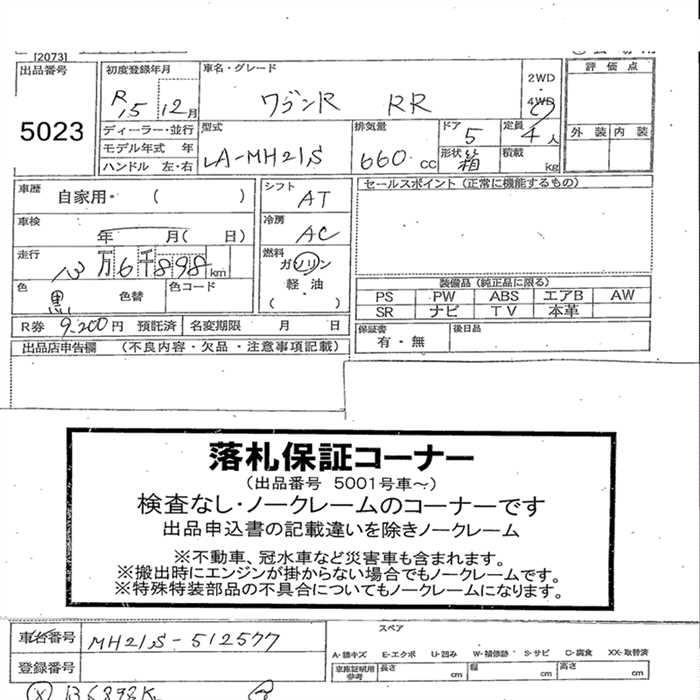 [2073]
出品番号
5023
初度登録年月
R15 12月
ディーラー・並行
モデル年式 年
ハンドル 左・右
車名・グレード
ワゴンR RR
2WD
・
4WD
評価点
外装 内装
型式
LA-MH21S
排気量
660 cc
ドア
5
定員
4人
形状
箱
積載
kg
車歴
自家用・ ( )
車検
年 月( 日)
走行
13万6千898km
色
黒
色替
色コード
R券 9,200円 預託済
名変期限 月 日
シフト
AT
冷房
AC
燃料
ガソリン
軽・油
( ・ )
セールスポイント (正常に機能するもの)
装備品 (純正品に限る)
PS PW ABS エアB AW
SR ナビ TV 本革
保証書
有・無
後日品
出品店申告欄 (不良内容・欠品・注意事項記載)
落札保証コーナー
(出品番号 5001号車～)
検査なし・ノークレームのコーナーです
出品申込書の記載違いを除きノークレーム
※不動車、冠水車など災害車も含まれます。
※搬出時にエンジンが掛からない場合でもノークレームです。
※特殊特装部品の不具合についてもノークレームになります。
車台番号
MH21S-512577
登録番号
スペア
A-線キズ E-エクボ U-凹み W-補修跡 S-サビ C-腐食 XX-取替済
車庫証明用参考
長さ cm
幅 cm
高さ cm
136898K